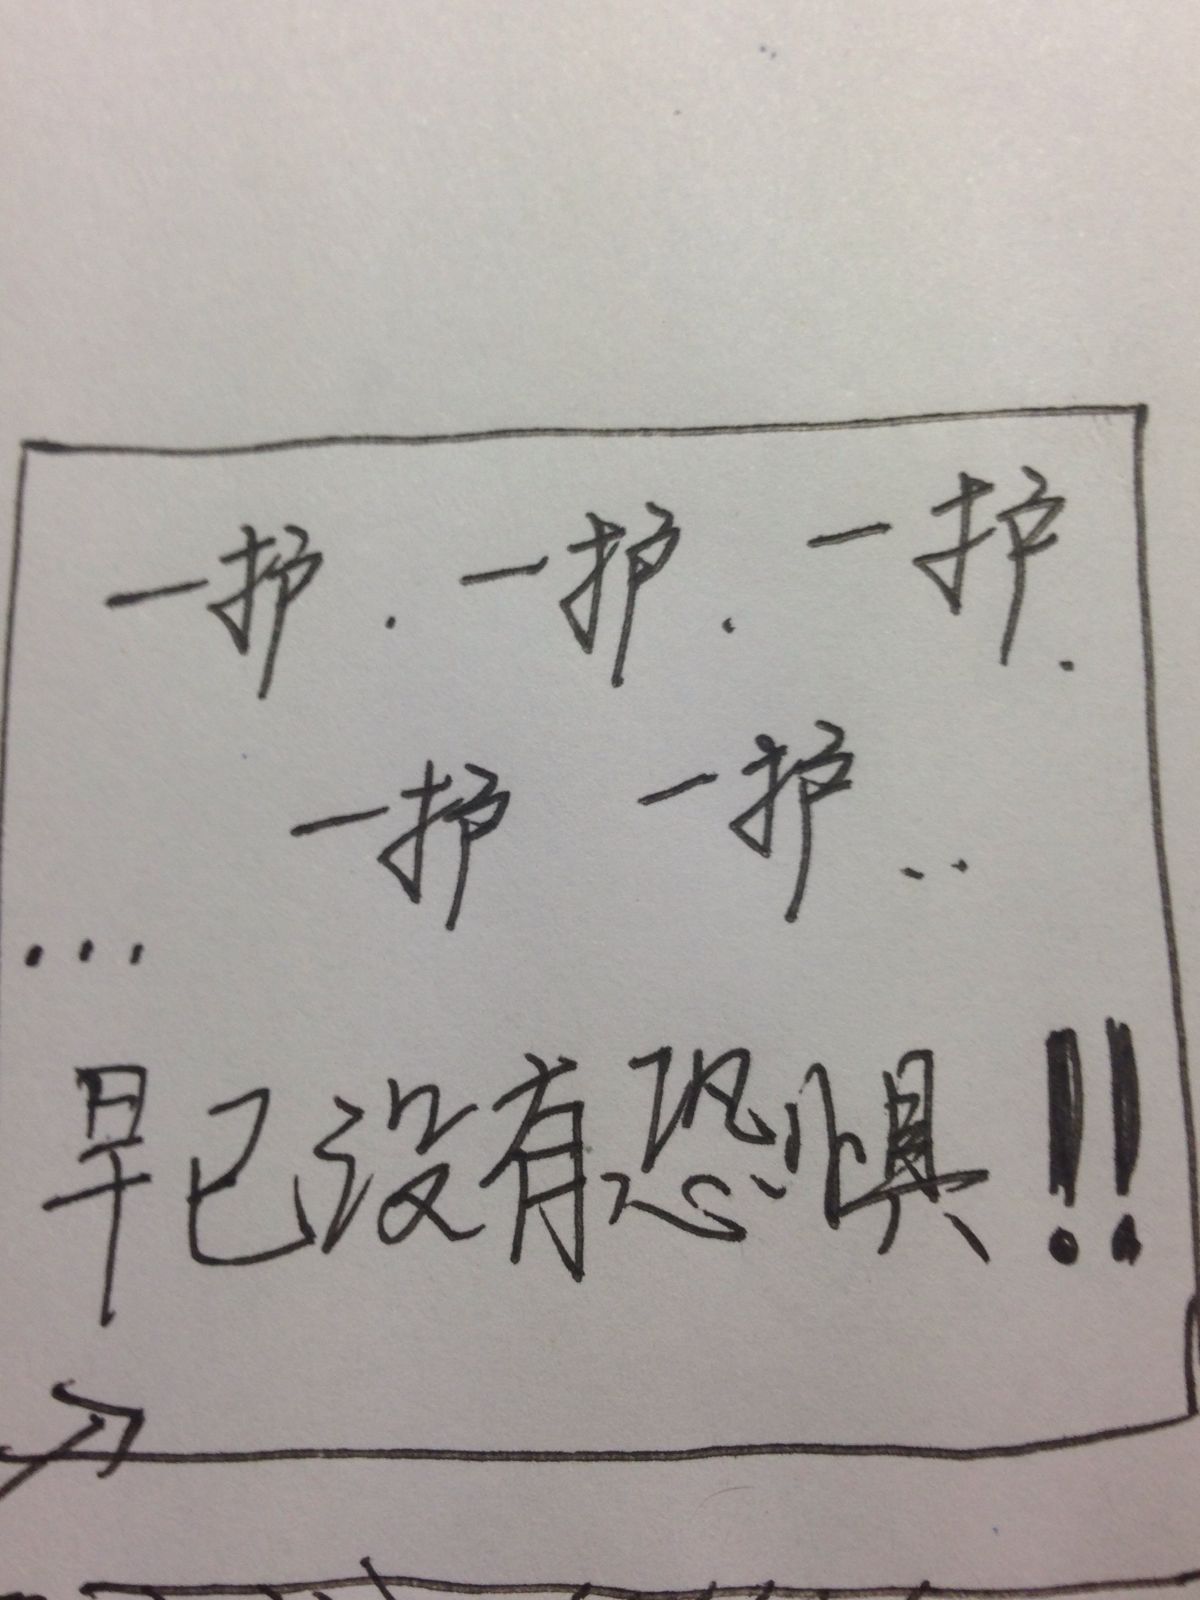 一护.一护.一护.
一护 一护..
...
早已没有恐惧!!